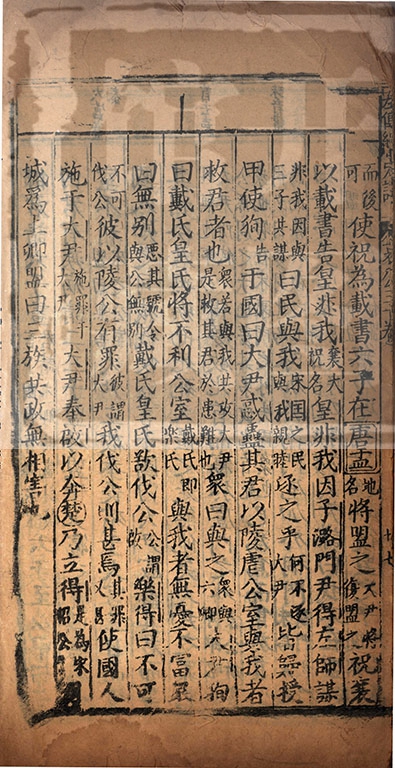 而後可使祝為載書六子在唐盂地名將盟之大尹將復盟之祝襄
以載書告皇非我襄大祝名皇非我因子潞門尹得左師謀
非我因與三子共謀曰民與我宋國之民與我親睦逐之乎何不逐大尹皆歸授
甲使徇告于國曰大尹惑蠱其君以陵虐公室與我者
救君者也眾若與我共攻大尹是救其君於患難也眾曰與之眾與六卿大尹徇
曰戴氏皇氏將不利公室戴氏即樂氏與我者無憂不富眾
曰無別惡其號令與公無別戴氏皇氏欲伐公公謂啟樂得曰不可
不可伐公彼以陵公有罪彼謂大尹我伐公則甚焉其罪又甚使國人
施于大尹施罪于大尹大尹奉啟以奔楚乃立得是為宋昭公
城為上卿盟曰三族共政無相害也